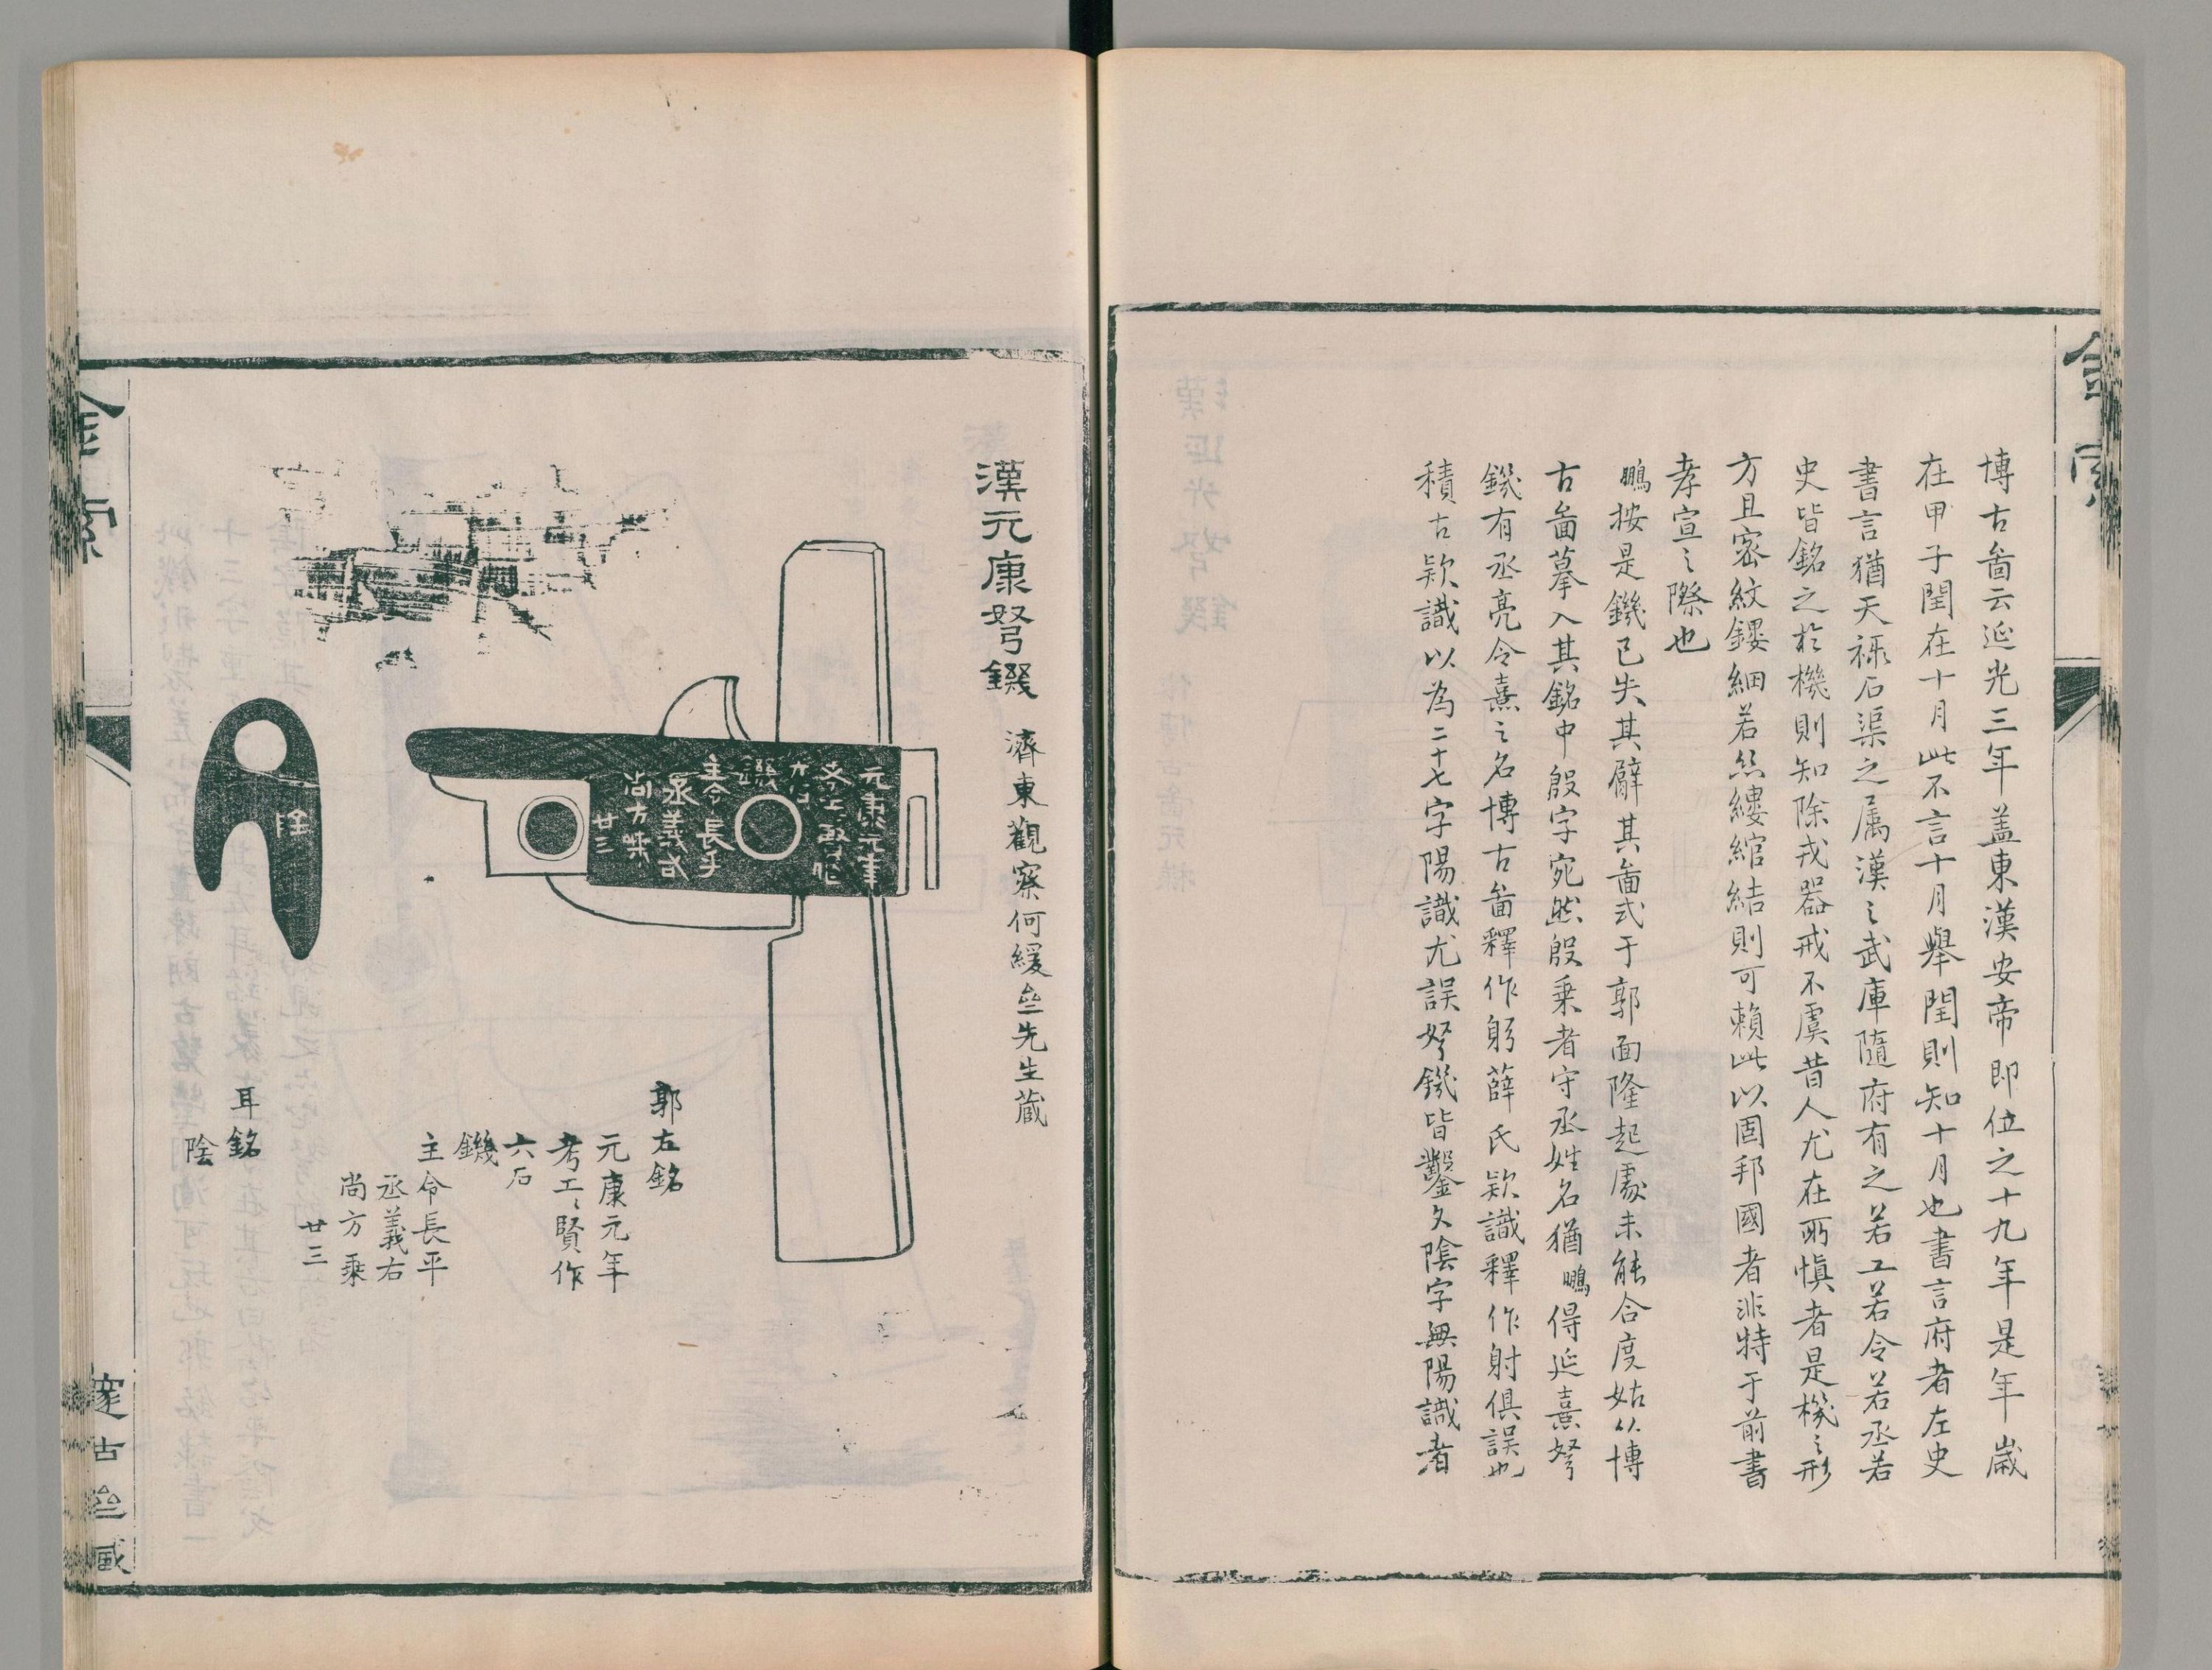 金索
博古啚云延光三年蓋東漢安帝即位之十九年是年歲
在甲子閏在十月此不言十月舉閏則知十月也書言府者左史
書言猶天祿石渠之属漢之武庫隨府有之若工若令若丞若
史皆銘之於機則知除戎器戒不虞昔人尤在所慎者是機之形
方且宻紋鏤細若絲縷綰結則可賴此以固邦國者非特于前書
孝宣之際也
鵬按是鐖已失其臂其啚式于郭面隆起處未能合度姑以博
古啚摹入其銘中殷字宛然殷乗者守丞姓名猶鵬得延熹弩
鐖有丞亮令熹之名博古啚釋作躬薛氏欵識釋作射俱誤也
積古欵識以為二十七字陽識尤誤弩鐖皆鑿欠陰字無陽識者
漢元康弩鐖 濟東觀察何緩亝先生蔵
元康元年
考工賢作
六石
鐖
主令長平
丞義右
尚方乗
廿三
陰
郭左銘
元康元年
考工〻賢作
六石
鐖
主令長平
丞義右
尚方乗
廿三
耳銘
陰
金索
邃古亝藏